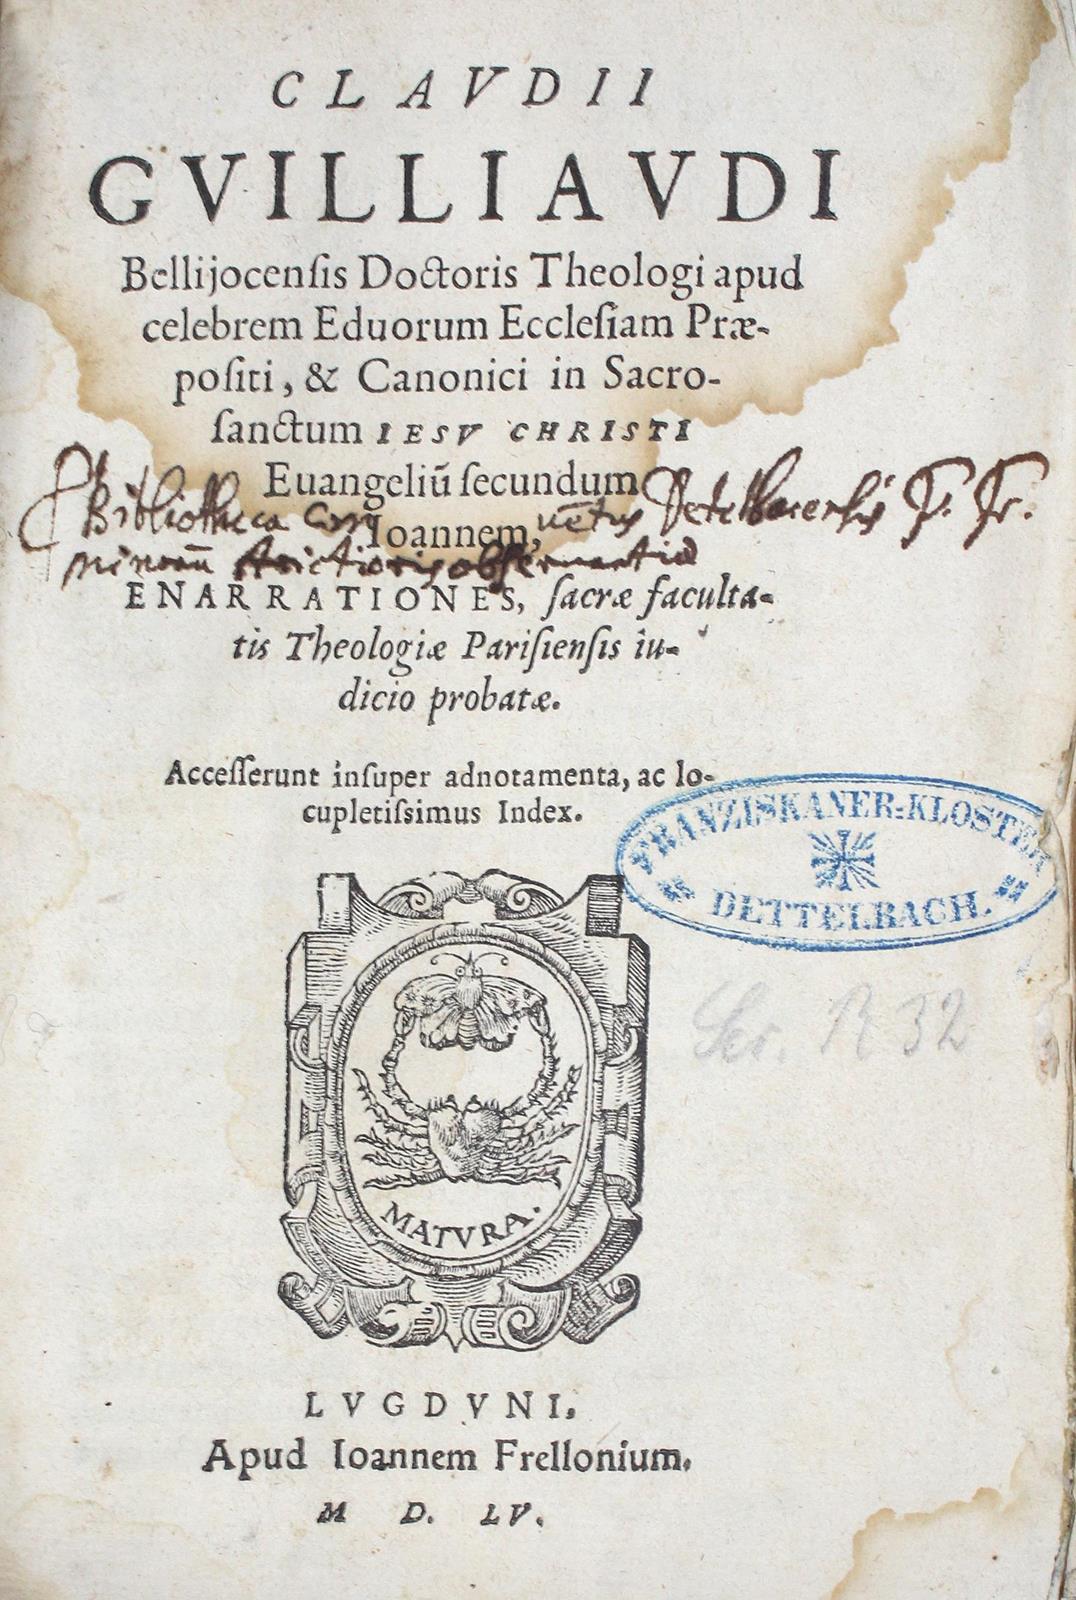 CLAVDII
GVILLIAVDI
Bellijocenſis Doctoris Theologi apud
celebrem Eduorum Eccleſiam Præ-
poſiti, & Canonici in Sacro-
ſanctum IESV CHRISTI
Euangeliū ſecundum
Ioannem,
Bibliotheca Dettelbacensis F. Fr.
minorū strictioris observantiæ
ENARRATIONES, ſacræ faculta-
tis Theologiæ Pariſienſis iu-
dicio probatæ.
Acceſſerunt inſuper adnotamenta, ac lo-
cupletiſsimus Index.
FRANZISKANER-KLOSTER
DETTELBACH.
R 32
MATVRA.
LVGDVNI,
Apud Ioannem Frellonium.
M D. LV.